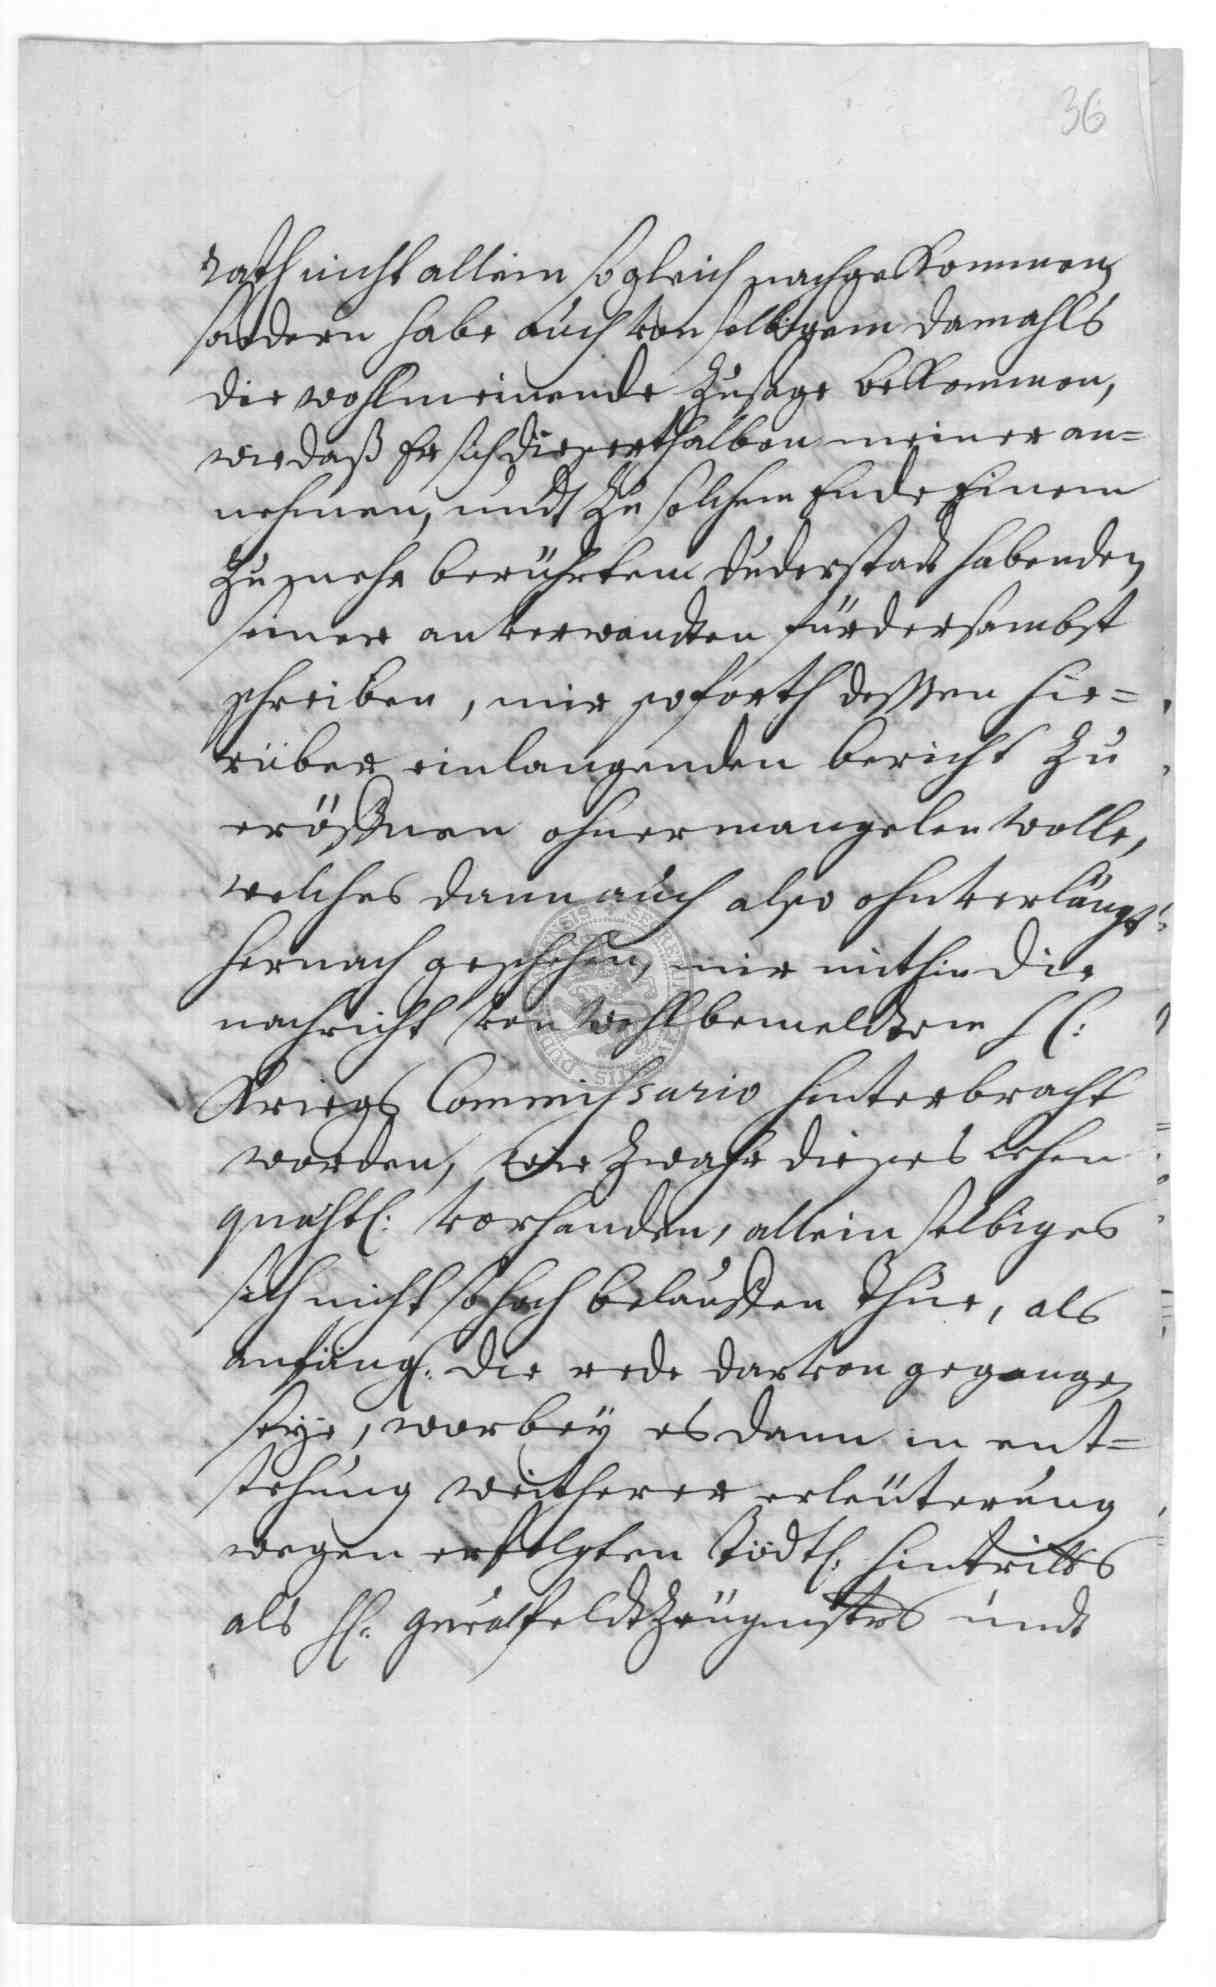 36
rath nicht allein so gleich nachgekommen,
sondern habe auch von selbigem damahls
die wohlmeinende Zusage bekommen,
wie daß Er sich dießerthalben meiner an=
nehmen, undt zu solchem Ende Einem
zu mehr berührtem Duderstatt habenden
seiner anverwandten fürdersambst
schreiben, mir soforth deßen hie=
rüber einlangenden bericht zu
eröffnen ohnermangelen wolle,
welches dann auch also ohnverlängt
hernach geschehen, mir mithin die
nachricht von wohlbemeltem H:
Kriegs Commissario hinterbracht
worden, wie zwahr dieses Lehen
vorhanden, allein selbiges
sich nicht so hoch belauffen thue, als
anfängl. die rede darvon gegangen
seye, worbey es dann in ent=
stehung weitherer erleüterung
wegen erfolgten tödtl: hintritts
als H. feldtzeügmstrs undt